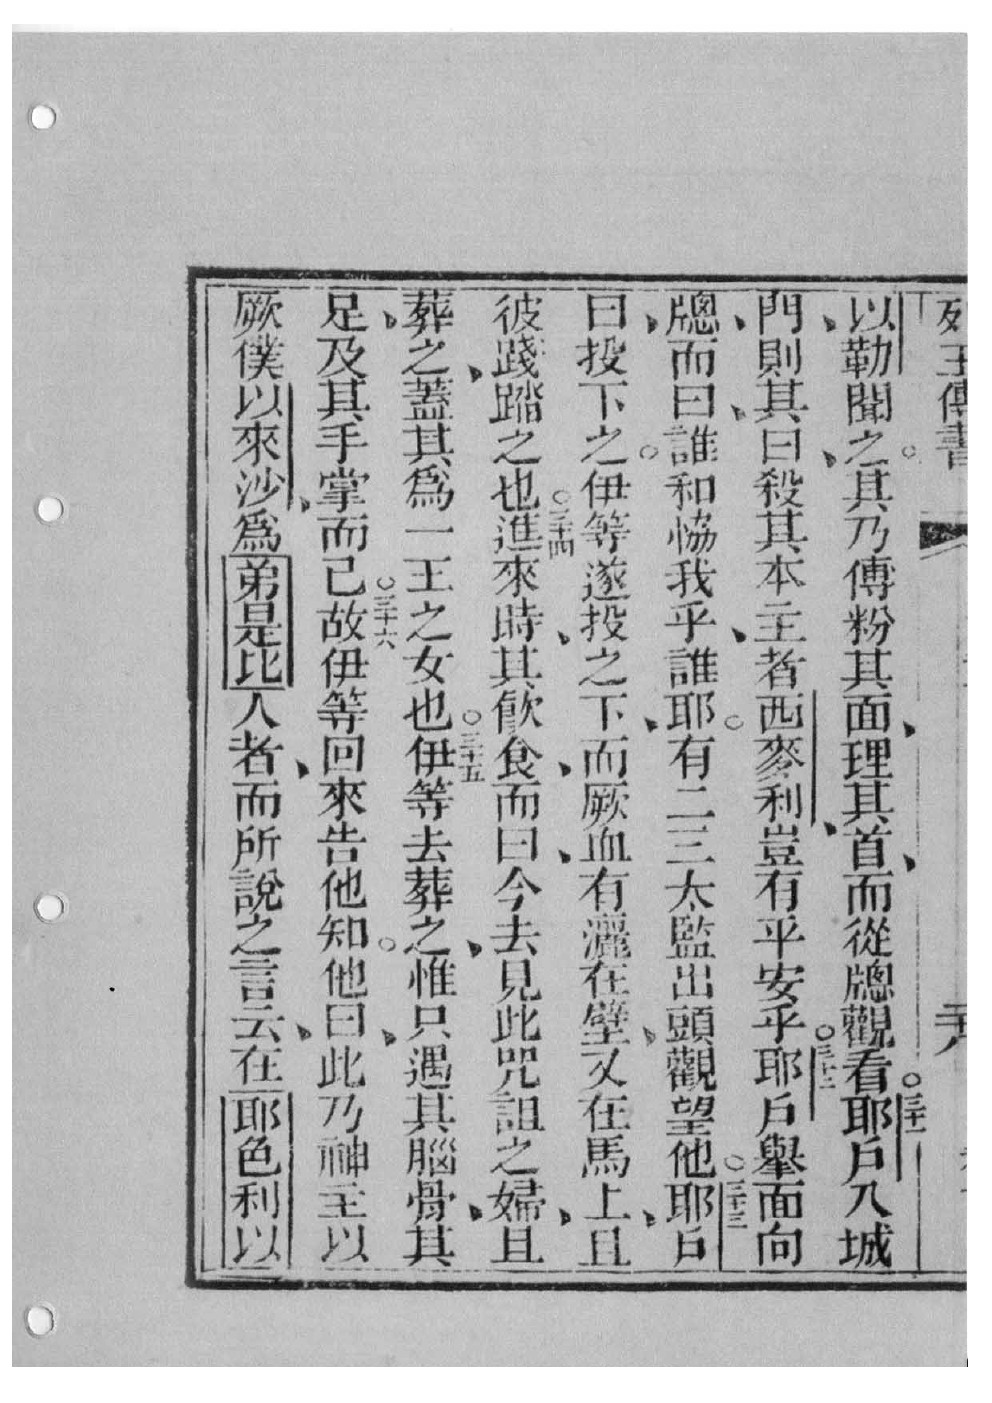 列王傳書
以勒聞之。其乃傅粉其面、理其首、而從牕觀看。三十一耶戶入城
門、則其曰、殺其本主者西麥利、豈有平安乎。三十二耶戶舉面向
牕、而曰、誰和恊我乎、誰耶。有二三太監出頭觀望他。三十三耶戶
曰、投下之。伊等遂投之下、而厥血有灑在壁、又在馬上、且
彼踐踏之也。三十四進來時、其飮食、而曰、今去見此咒詛之婦、且
葬之、蓋其爲一王之女也。三十五伊等去葬之、惟只遇其腦骨、其
足、及其手掌而已。三十六故伊等回來告他知。他曰、此乃神主以
厥僕以來沙、爲弟是比人者、而所說之言云、在耶色利以